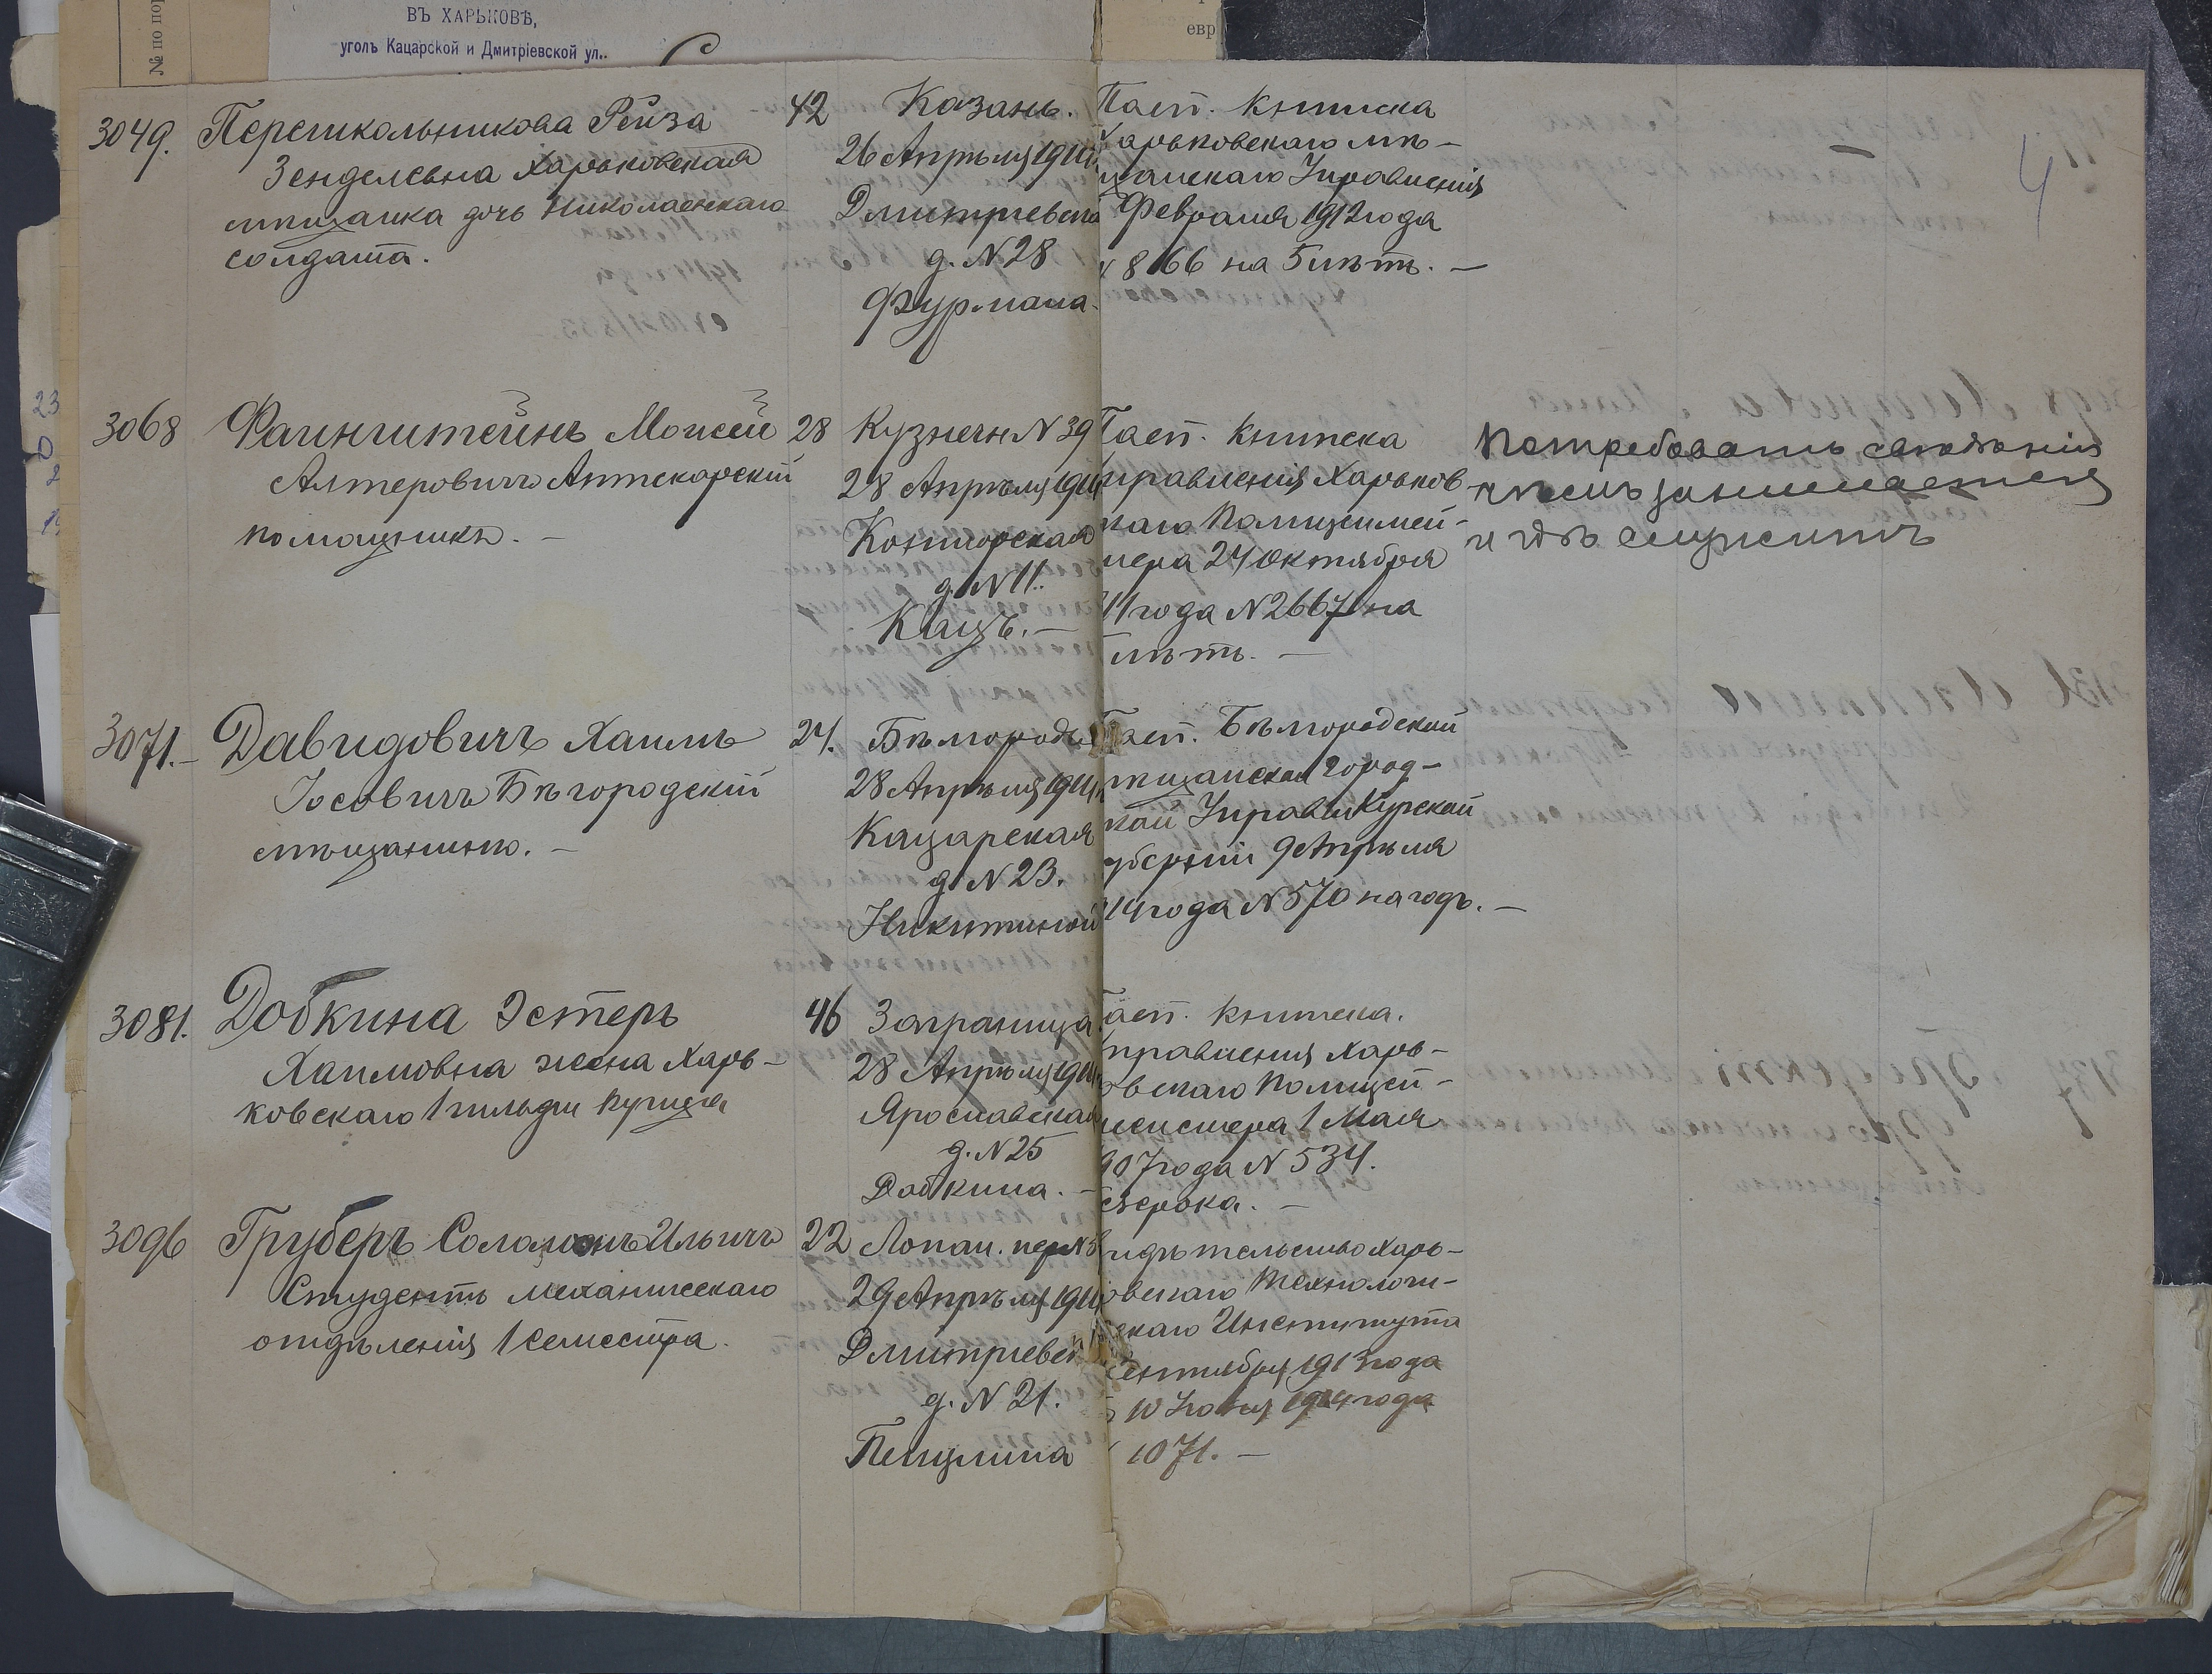 № по пор
ВЪ ХАРЬКОВѢ,
уголъ Кацарской и Дмитріевской ул..
евр
4
3049. Перешкольникова Рейза
Зенделевна Харьковская
мѣщанка дочь Николаевскаго
солдата.
42
Казань.
26 Апрѣля 1914
Дмитріевск
д. N 28
Фурмана.
Пасп. книжка
Харьковскаго мѣ-
щанскаго Управленія
Февраля 1912 года
8166 на 5 лѣтъ. —
3068 Файнштейнъ Моисей
Алтеровичъ Аптекарскій
помощникъ. —
28
Кузнечн N 39
28 Апрѣля 1914
Конторская
д. N 11.
Кацъ. —
Пасп. книжка
управленія Харьков
скаго Полицеймей-
тера 24 Октября
11 года N 2667 на
лѣтъ. —
Потребовать свѣдѣнія
чѣмъ занимается
и гдѣ служитъ
3071. — Давидовичъ Хаимъ
Іосовичъ Бѣгородскій
мѣщанинъ. —
24.
Бѣлгородъ
28 Апрѣля 1914
Кацарская
д. N 23.
Никитиной
Пасп. Бѣлгородской
мѣщанской город-
ской Управы Курской
губерніи 9 Апрѣля
14 года N 570 на годъ. —
3081. Добкина Эстеръ
Хаимовна жена Харь-
ковскаго 1 гильдіи купца
46
Заграница.
28 Апрѣля 1914
Ярославская
д. N 25
Добкина. —
Пасп. книжка.
Управленія Харь-
овскаго Полицей-
мейстера 1 Мая
907 года N 534.
безсрока. —
3096 Груберъ Соломонъ Ильичъ
Студентъ механическаго
отдѣленія 1 семестра.
22
Лопан. пер N 5
29 Апрѣля 1914
Дмитріевск
д. N 21.
Пещлина
видѣтельство Харь-
овскаго Технологи-
скаго Института
Сентября 1913 года
10 Іюня 1914 года
1071. —